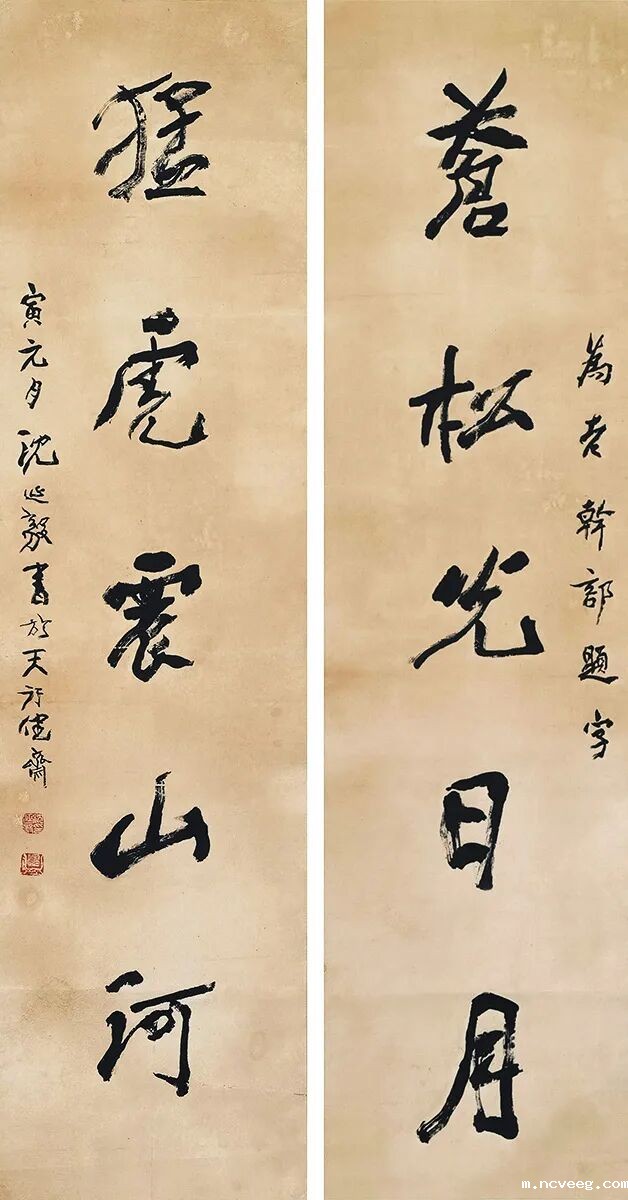 為老幹部題字
蒼松光日月
猛虎震山河
寅元月沈延毅書於天行健齋
m.ncveeg.com